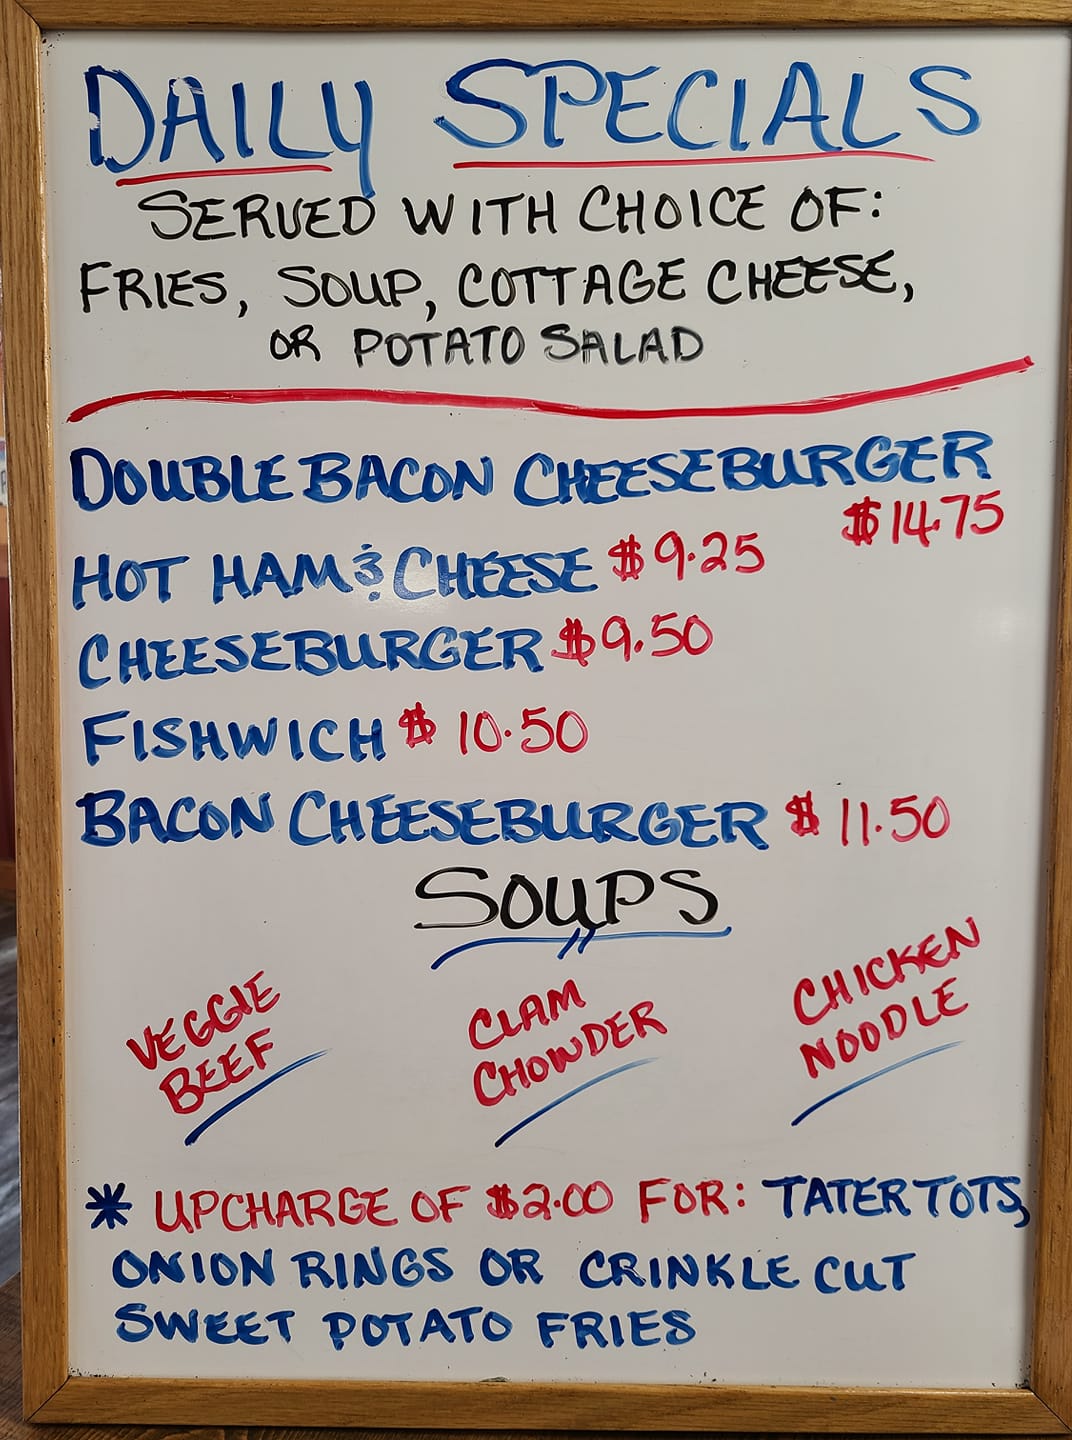 DAILY SPECIALS
SERVED WITH CHOICE OF:
FRIES, SOUP, COTTAGE CHEESE,
OR POTATO SALAD
DOUBLE BACON CHEESEBURGER
$14.75
HOT HAM & CHEESE $9.25
CHEESEBURGER $9.50
FISHWICH $ 10.50
BACON CHEESEBURGER $ 11.50
SOUPS
VEGGIE
BEEF
CLAM
CHOWDER
CHICKEN
NOODLE
* UPCHARGE OF $2.00 FOR: TATER TOTS,
ONION RINGS OR CRINKLE CUT
SWEET POTATO FRIES